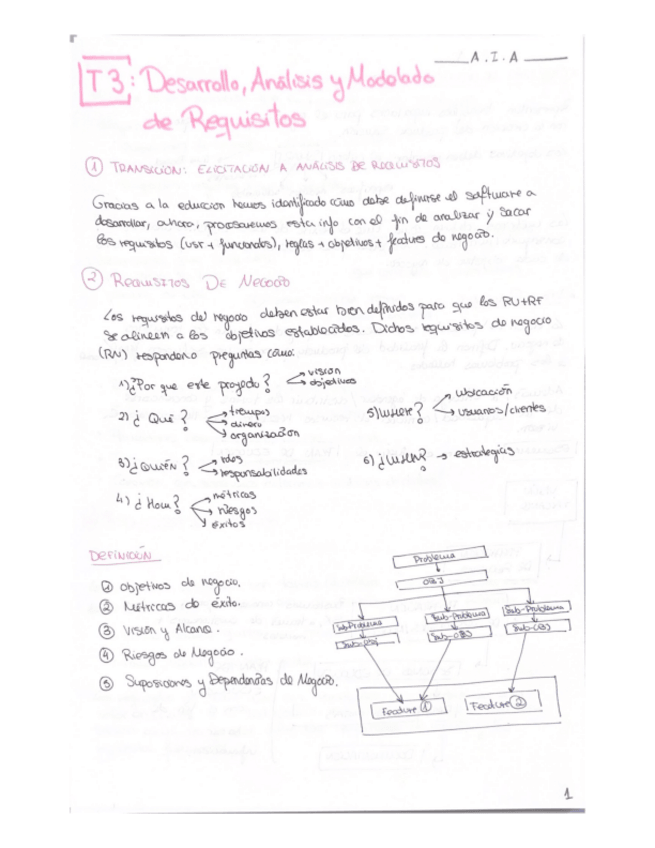 A.I.A
T3: Desarrollo, Análisis y Modelado
de Requisitos
① TRANSICIÓN: ELICITACIÓN A ANÁLISIS DE REQUISITOS
Gracias a la educción hemos identificado cómo debe definirse el software a
desarrollar, ahora, procesaremos esta info con el fin de analizar y sacar
los requisitos (usr + funcionales), reglas + objetivos + features de negocio.
② REQUISITOS DE NEGOCIO
Los requisitos del negocio deben estar bien definidos para que los RU+RF
se alineen a los objetivos establecidos. Dichos requisitos de negocio
(RN) responden a preguntas como:
1) ¿Por que este proyecto? visión
objetivos
2) ¿Qué? tiempos
dinero
organización
3) ¿Quién? roles
responsabilidades
4) ¿How? métricas
riesgos
éxitos
5) Where? ubicación
usuarios/clientes
6) ¿When? → estrategias
DEFINICIÓN
① Objetivos de negocio.
② Métricas de éxito.
③ Visión y Alcance.
④ Riesgos de Negocio.
⑤ Suposiciones y Dependencias de Negocio.
Problema
OBJ
Sub-Problema
Sub-OBJ
Sub-Problema
Sub-OBJ
Sub-Problema
Sub-OBJ
Feature ①
Feature ②
1